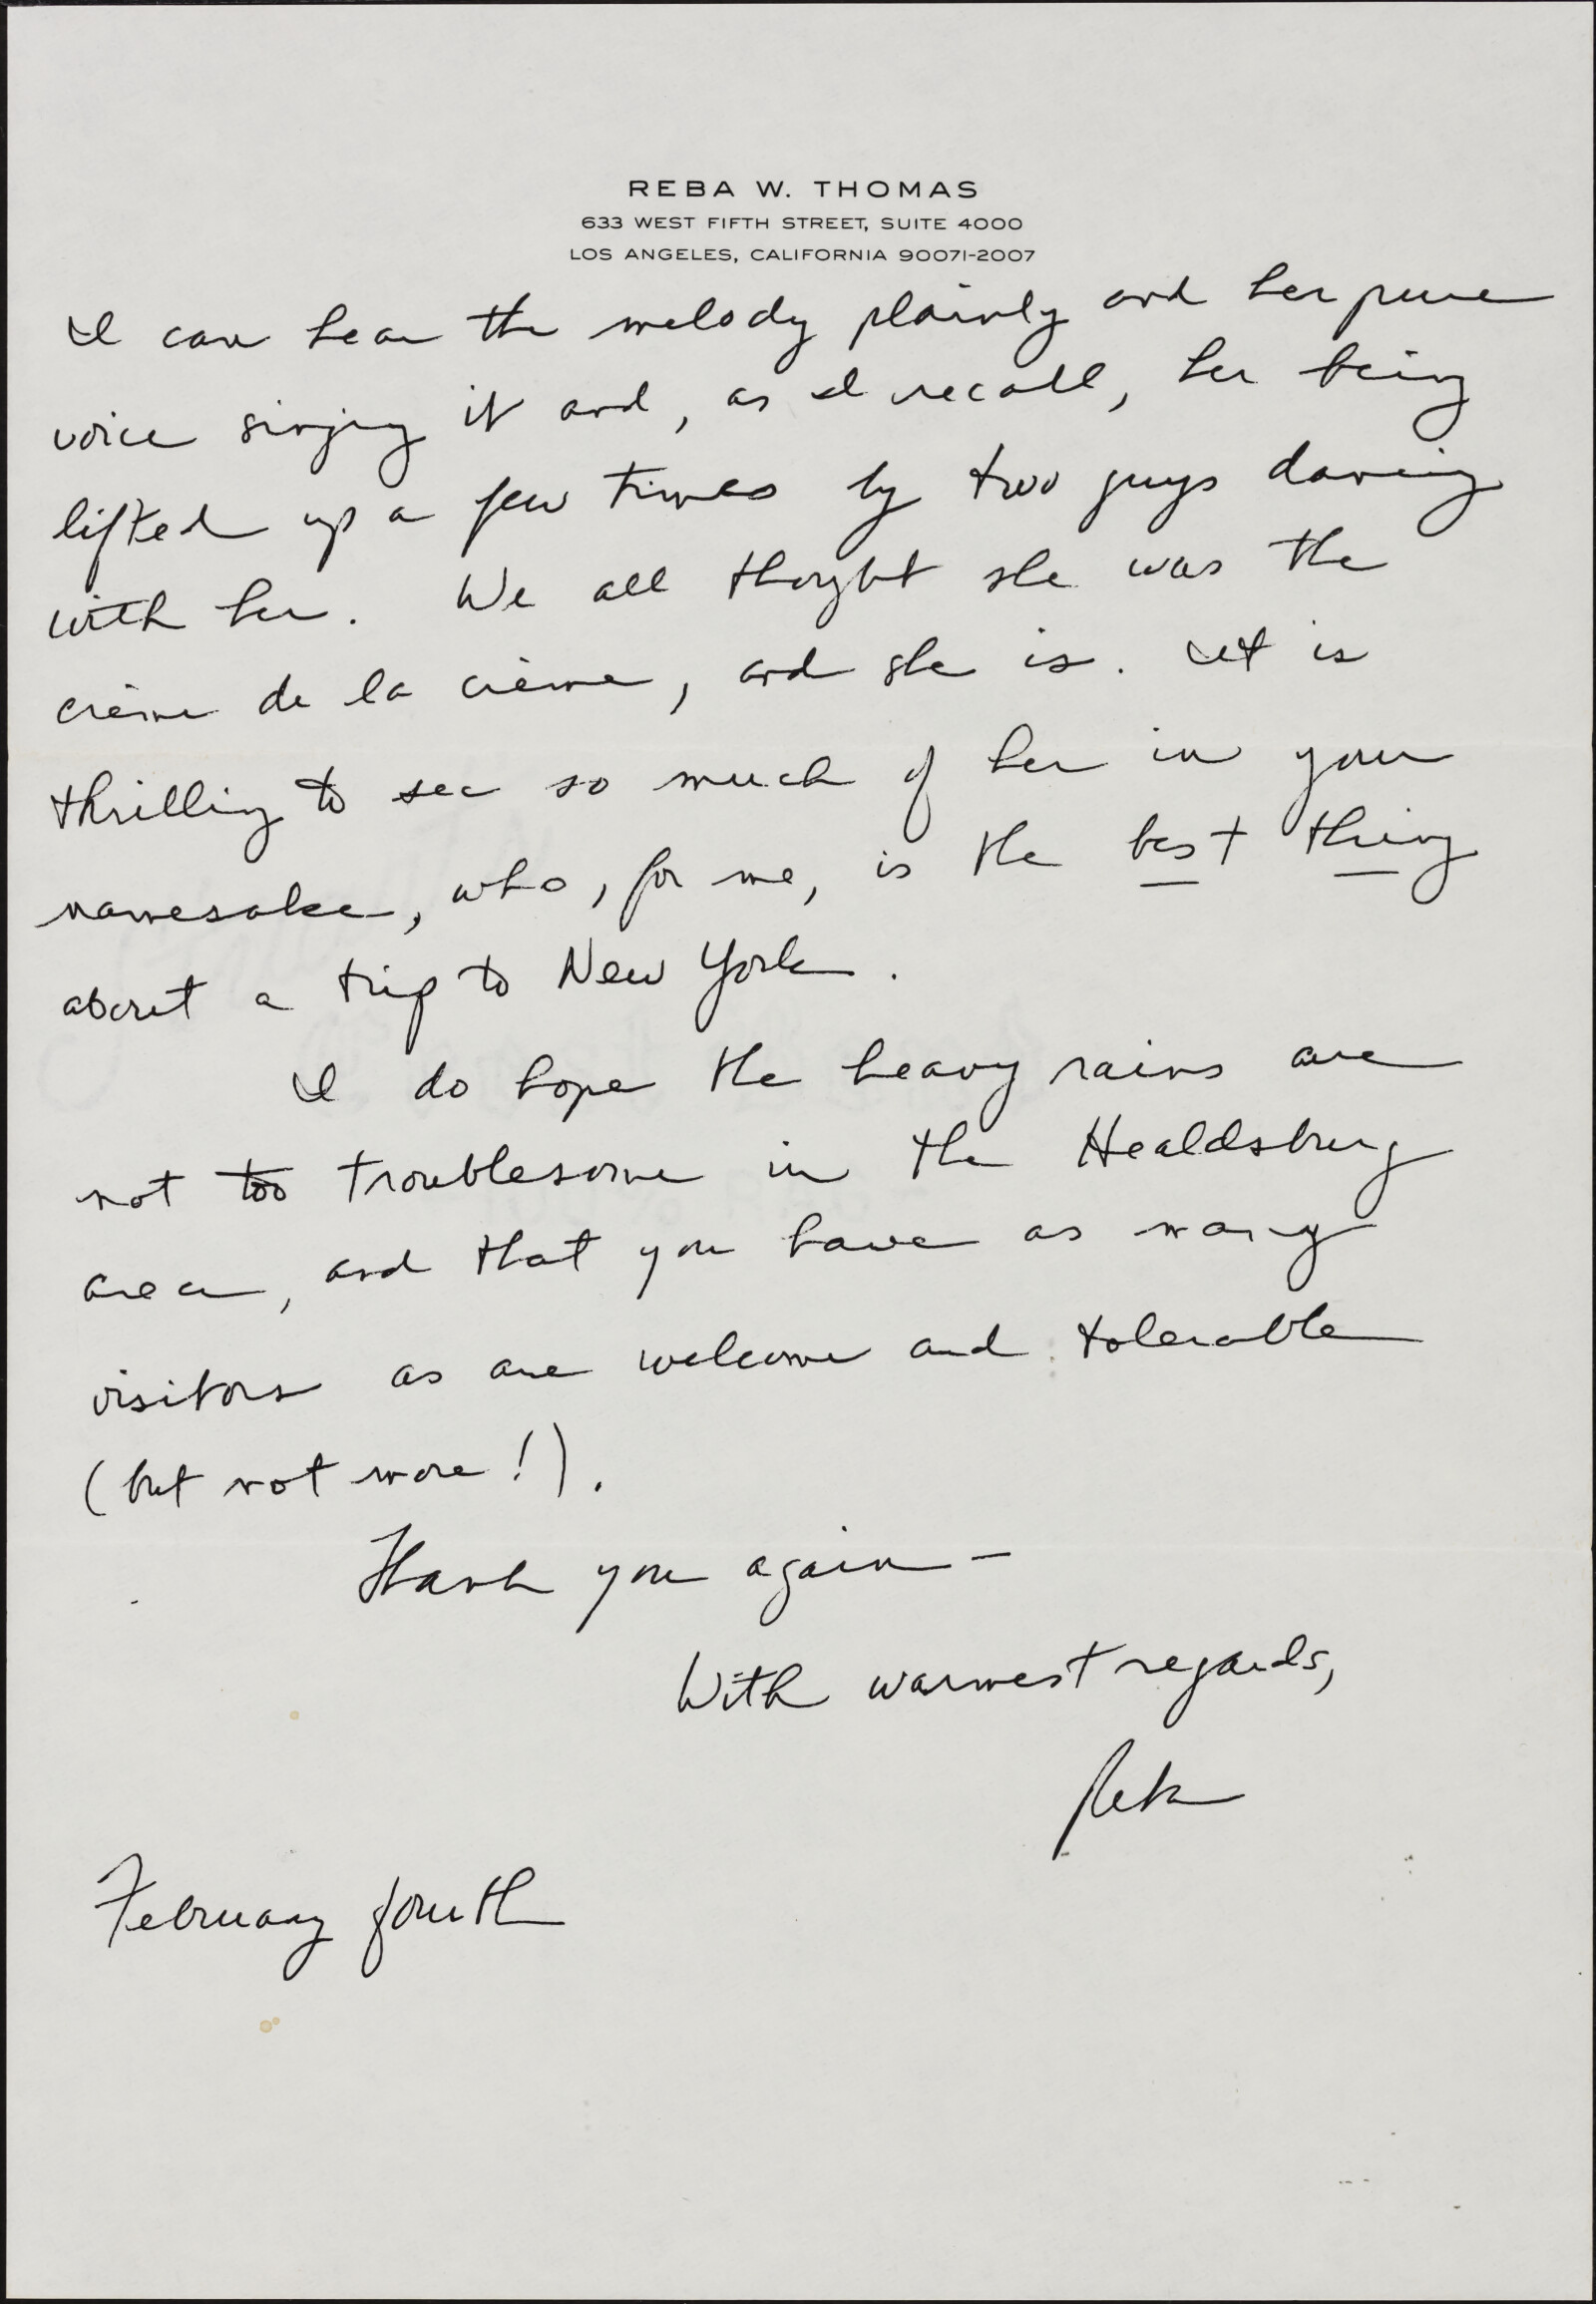 REBA W. THOMAS
633 WEST FIFTH STREET, SUITE 4000
LOS ANGELES, CALIFORNIA 90071-2007
I can hear the melody plainly and her pure
voice singing it and, as I recall, her being
lifted up a few times by two guys dancing
with her. We all thought she was the
crème de la crème, and she is. It is
thrilling to see so much of her in your
namesake, who, for me, is the best thing
about a trip to New York.
I do hope the heavy rains are
not too troublesome in the Healdsburg
area, and that you have as many
visitors as are welcome and tolerable
(but not more!).
Thank you again—
With warmest regards,
Reba
February fourth